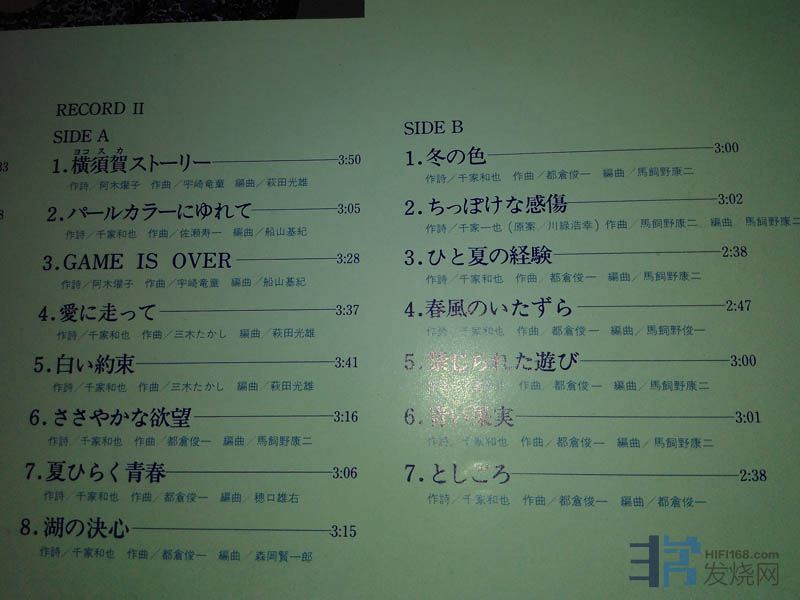 RECORD II
SIDE A
ヨコ ス カ
1.横須賀ストーリー 3:50
作詩/阿木燿子 作曲/宇崎竜童 編曲/萩田光雄
2.パールカラーにゆれて 3:05
作詩/千家和也 作曲/佐瀬寿一 編曲/船山基紀
3.GAME IS OVER 3:28
作詩/阿木燿子 作曲/宇崎竜童 編曲/船山基紀
4.愛に走って 3:37
作詩/千家和也 作曲/三木たかし 編曲/萩田光雄
5.白い約束 3:41
作詩/千家和也 作曲/三木たかし 編曲/萩田光雄
6.ささやかな欲望 3:16
作詩/千家和也 作曲/都倉俊一 編曲/馬飼野康二
7.夏ひらく青春 3:06
作詩/千家和也 作曲/都倉俊一 編曲/穂口雄右
8.湖の決心 3:15
作詩/千家和也 作曲/都倉俊一 編曲/森岡賢一郎
SIDE B
1.冬の色 3:00
作詩/千家和也 作曲/都倉俊一 編曲/馬飼野康二
2.ちっぽけな感傷 3:02
作詩/千家一也(原案/川緑浩幸)作曲/馬飼野康二 編曲/馬飼野康二
3.ひと夏の経験 2:38
作詩/千家和也 作曲/都倉俊一 編曲/馬飼野康二
4.春風のいたずら 2:47
作詩/千家和也 作曲/都倉俊一 編曲/馬飼野俊一
5.禁じられた遊び 3:00
作曲/都倉俊一 編曲/馬飼野康二
6.青い果実 3:01
作詩/千家和也 作曲/都倉俊一 編曲/馬飼野康二
7.としごろ 2:38
作詩/千家和也 作曲/都倉俊一 編曲/都倉俊一
33
8
HIFI168.com
发烧网